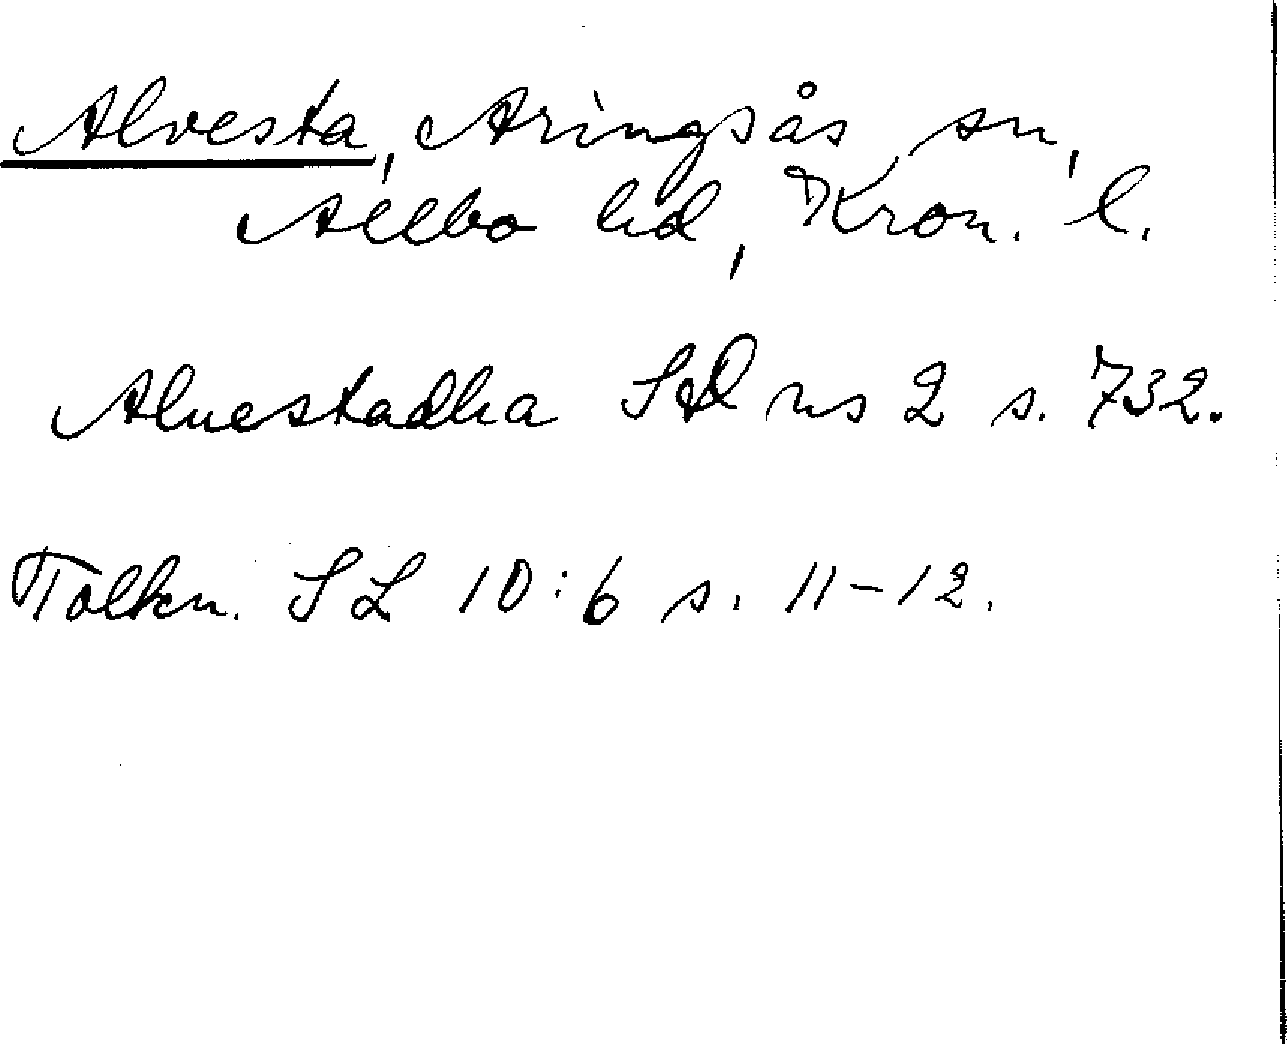 Alvesta, Aringsås sn,
Allbo hd, Kron. l.
Aluestadha SD ns 2 s. 732.
Tolkn. SL 10:6 s. 11-12.